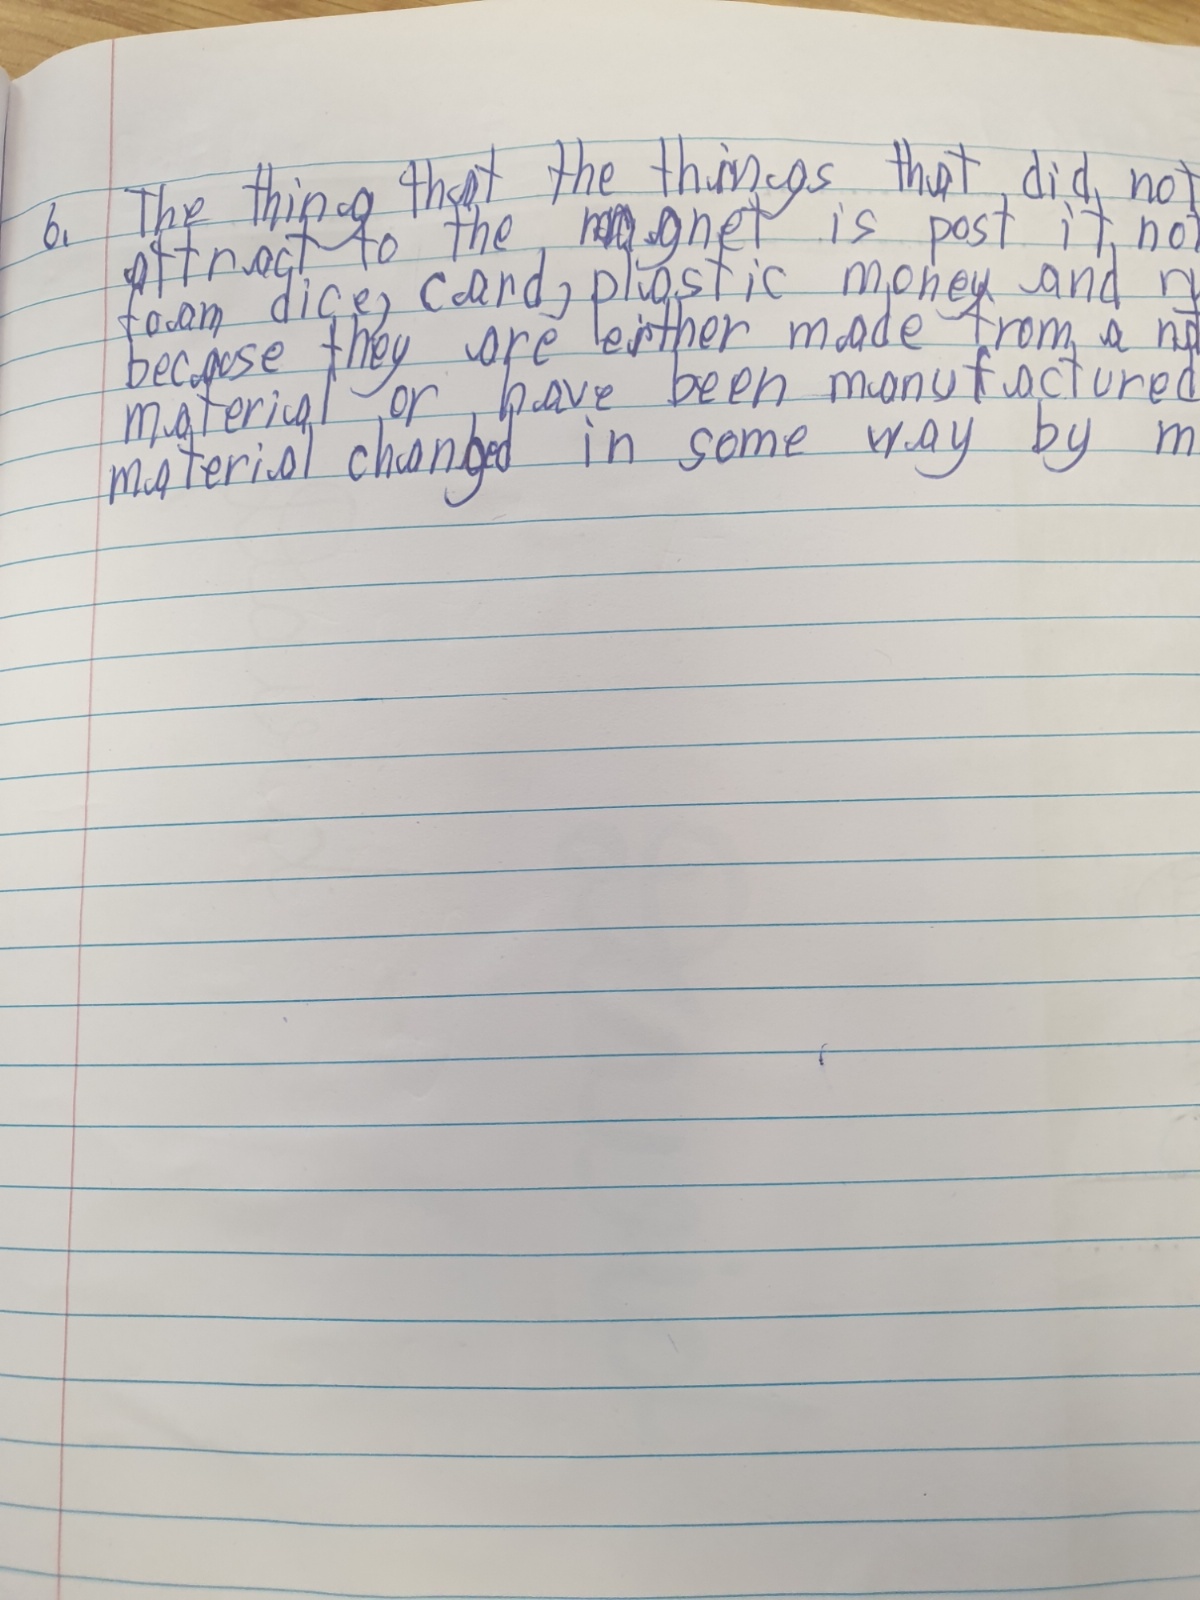 6. The thing that the things that did not
attract to the magnet is post it
foam dice, card, plastic money and
because they are either made from a
material or have been manufactured
material changed in some way by